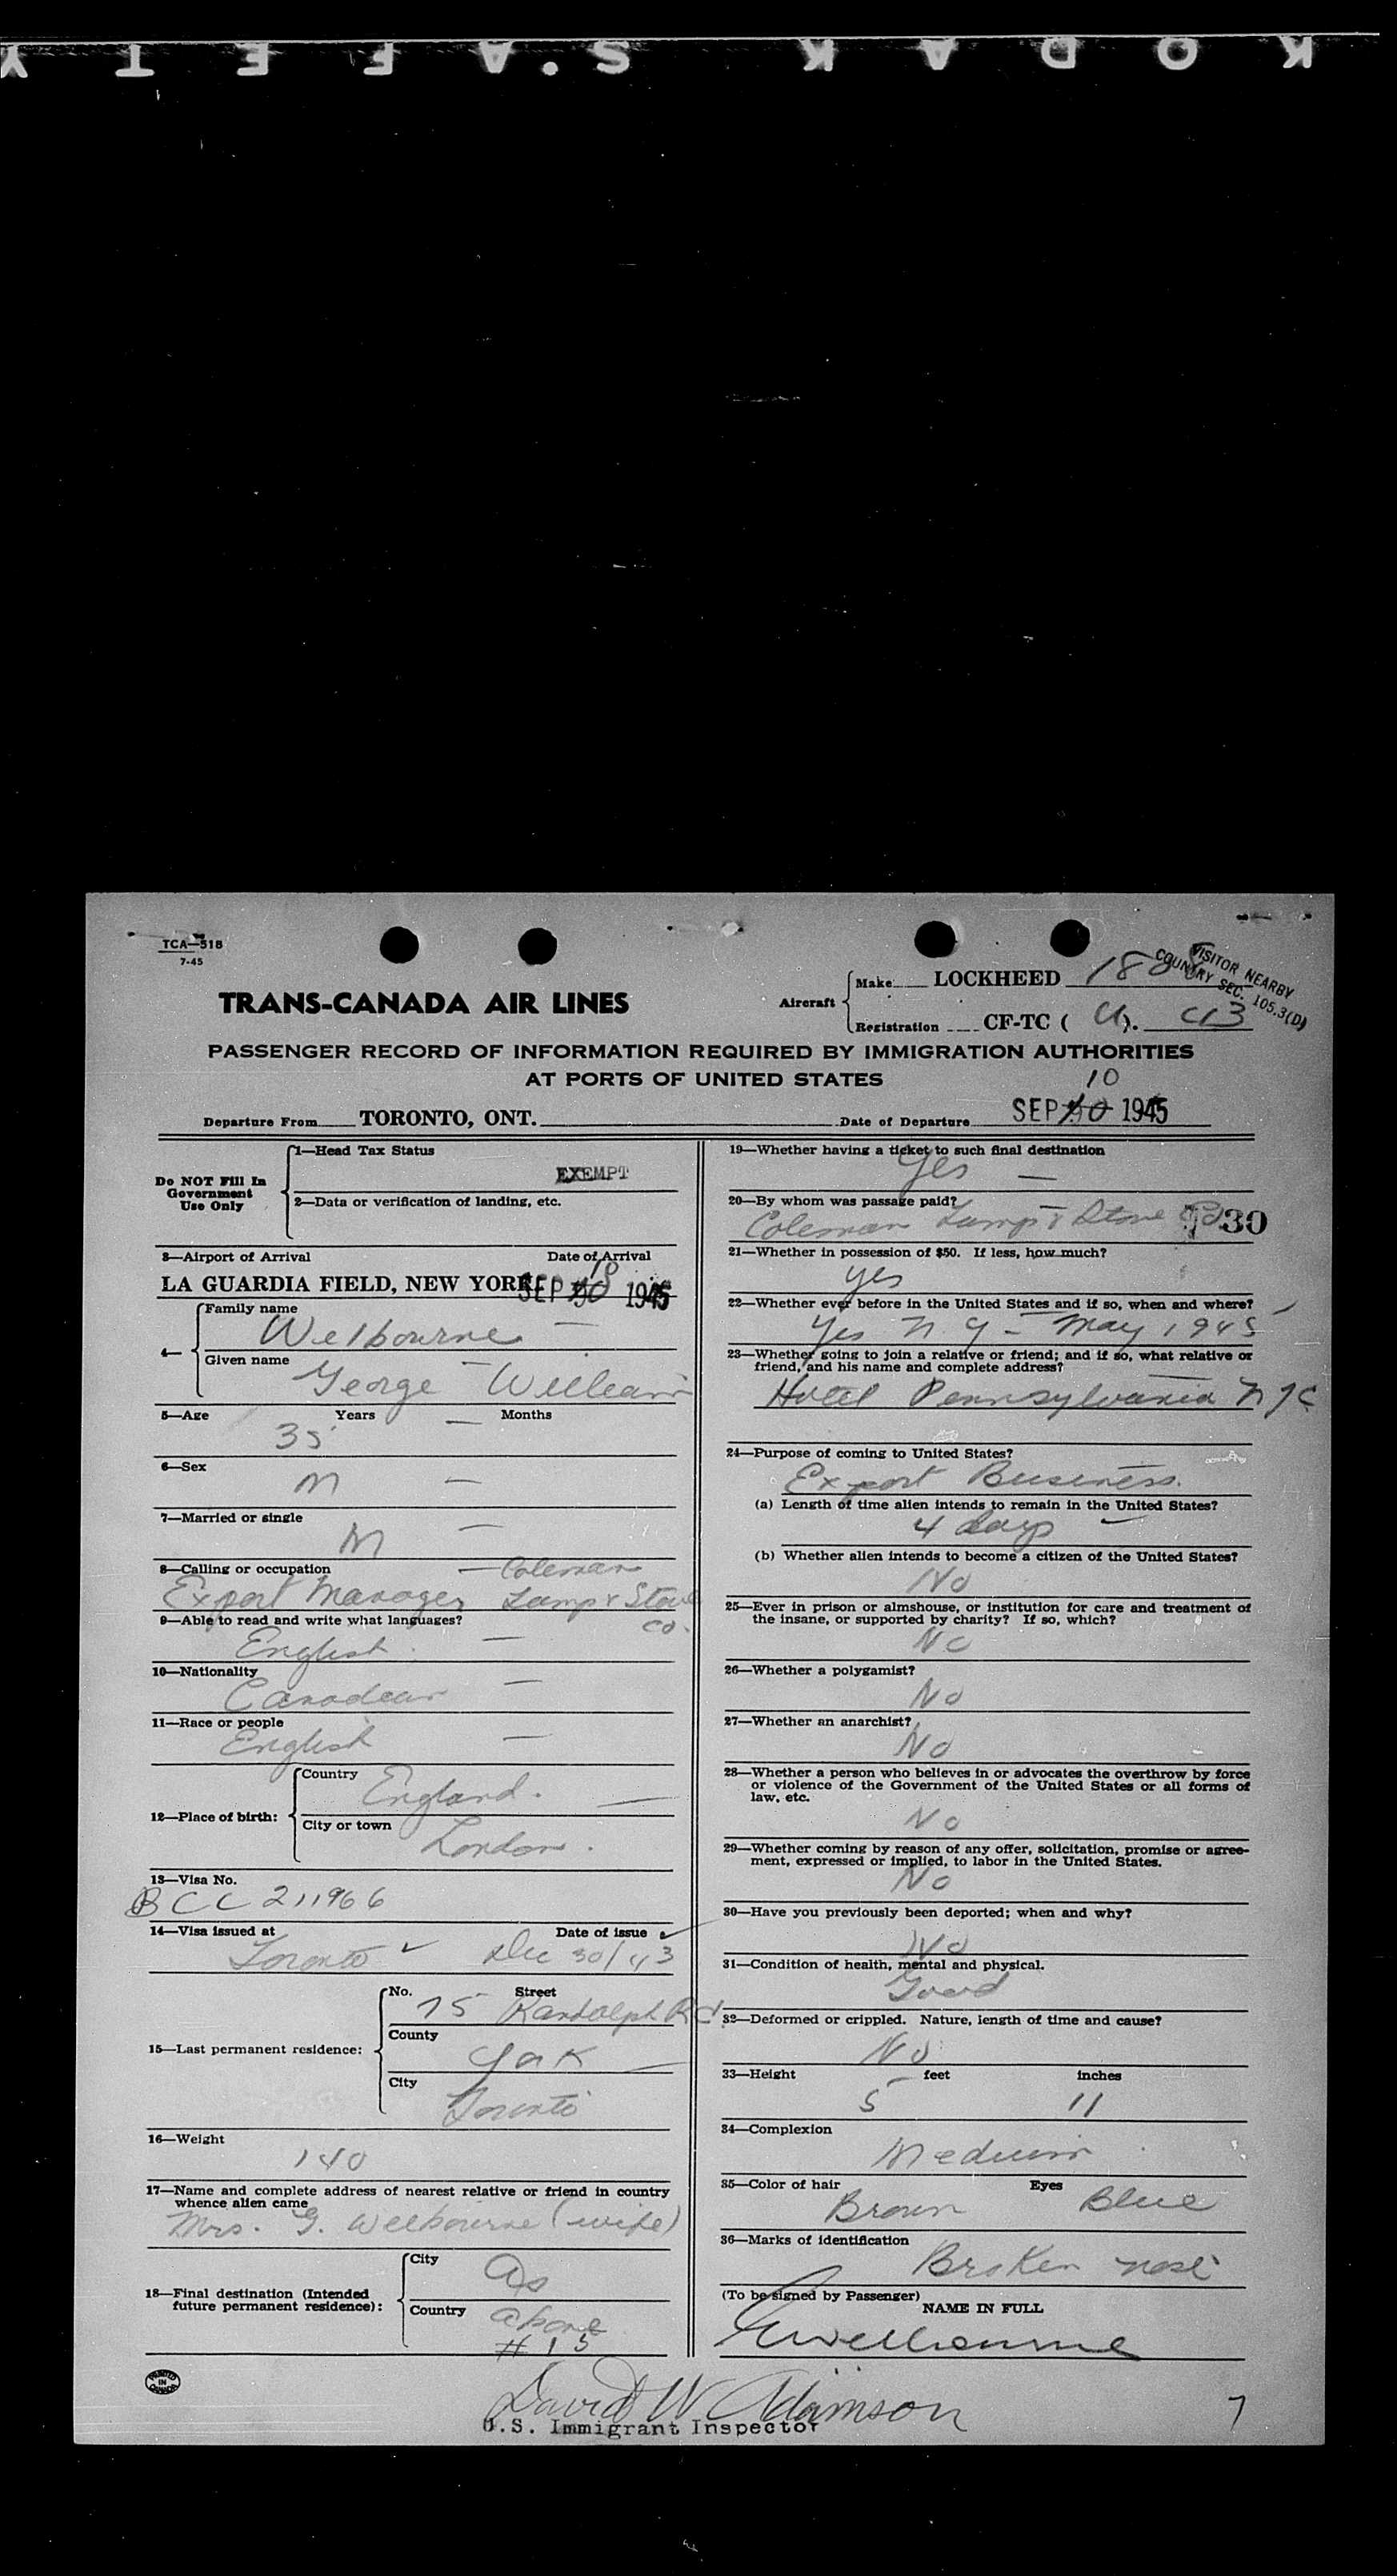 KODAK SAFETY
TCA—518
7-45
VISITOR NEARBY
COUNTRY SEC. 105.3(D)
TRANS-CANADA AIR LINES
Aircraft
Make LOCKHEED
Registration CF-TC ( ).
PASSENGER RECORD OF INFORMATION REQUIRED BY IMMIGRATION AUTHORITIES
AT PORTS OF UNITED STATES
10
Departure From TORONTO, ONT. Date of Departure SEP 1945
Do NOT Fill In
Government
Use Only
1—Head Tax Status
EXEMPT
2—Data or verification of landing, etc.
3—Airport of Arrival Date of Arrival
10
LA GUARDIA FIELD, NEW YORK SEP 1945
4—
Family name
Welbourne —
Given name
George — William
5—Age Years Months
35 —
6—Sex
M —
7—Married or single
M —
8—Calling or occupation — Coleman
Export Manager Lamp & Stove
Co.
9—Able to read and write what languages?
English —
10—Nationality
Canadian —
11—Race or people
English —
12—Place of birth:
Country
England. —
City or town
London.
13—Visa No.
BCC 211966
14—Visa issued at Date of issue
Toronto ✓ Dec 30/43
15—Last permanent residence:
No. Street
75 Randolph Rd.
County
York —
City
Toronto
16—Weight
140
17—Name and complete address of nearest relative or friend in country
whence alien came
Mrs. G. Welbourne (wife)
18—Final destination (Intended
future permanent residence):
City
As
Country
above
# 15
19—Whether having a ticket to such final destination
Yes —
20—By whom was passage paid?
Coleman Lamp & Stove Co 30
21—Whether in possession of $50. If less, how much?
yes
22—Whether ever before in the United States and if so, when and where?
Yes N.Y — May 1945
23—Whether going to join a relative or friend; and if so, what relative or
friend, and his name and complete address?
Hotel Pennsylvania NYC
24—Purpose of coming to United States?
Export Business.
(a) Length of time alien intends to remain in the United States?
4 days
(b) Whether alien intends to become a citizen of the United States?
No
25—Ever in prison or almshouse, or institution for care and treatment of
the insane, or supported by charity? If so, which?
No
26—Whether a polygamist?
No
27—Whether an anarchist?
No
28—Whether a person who believes in or advocates the overthrow by force
or violence of the Government of the United States or all forms of
law, etc.
No
29—Whether coming by reason of any offer, solicitation, promise or agree-
ment, expressed or implied, to labor in the United States.
No
30—Have you previously been deported; when and why?
No
31—Condition of health, mental and physical.
Good
32—Deformed or crippled. Nature, length of time and cause?
No
33—Height feet inches
5 11
34—Complexion
Medium
35—Color of hair Eyes
Brown Blue
36—Marks of identification
Broken nose
(To be signed by Passenger)
NAME IN FULL
GWelbourne
PRINTED
IN
CANADA
David W Adamson
U.S. Immigrant Inspector
7